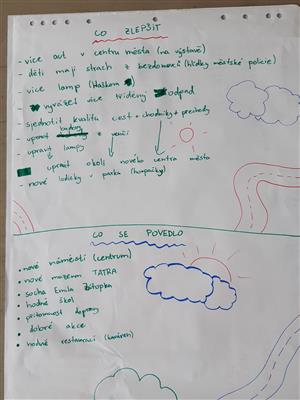 CO ZLEPŠIT
- více aut v centru města (na výstavě)
- děti mají strach z bezdomovců (hlídky městské policie)
- více lamp
- vyvážet více tříděný odpad
- sjednotit kvalitu cest + chodníky + přechody
- upravit z venčí
upravit lampy
upravit okolí nového centra města
- nové lodičky v parku (houpačky)
CO SE POVEDLO
• nové náměstí (centrum)
• nové muzeum TATRA
• socha Emila Zátopka
• hodně škol
• přítomnost dopravy
• dobré akce
• hodně restaurací (kaváren)